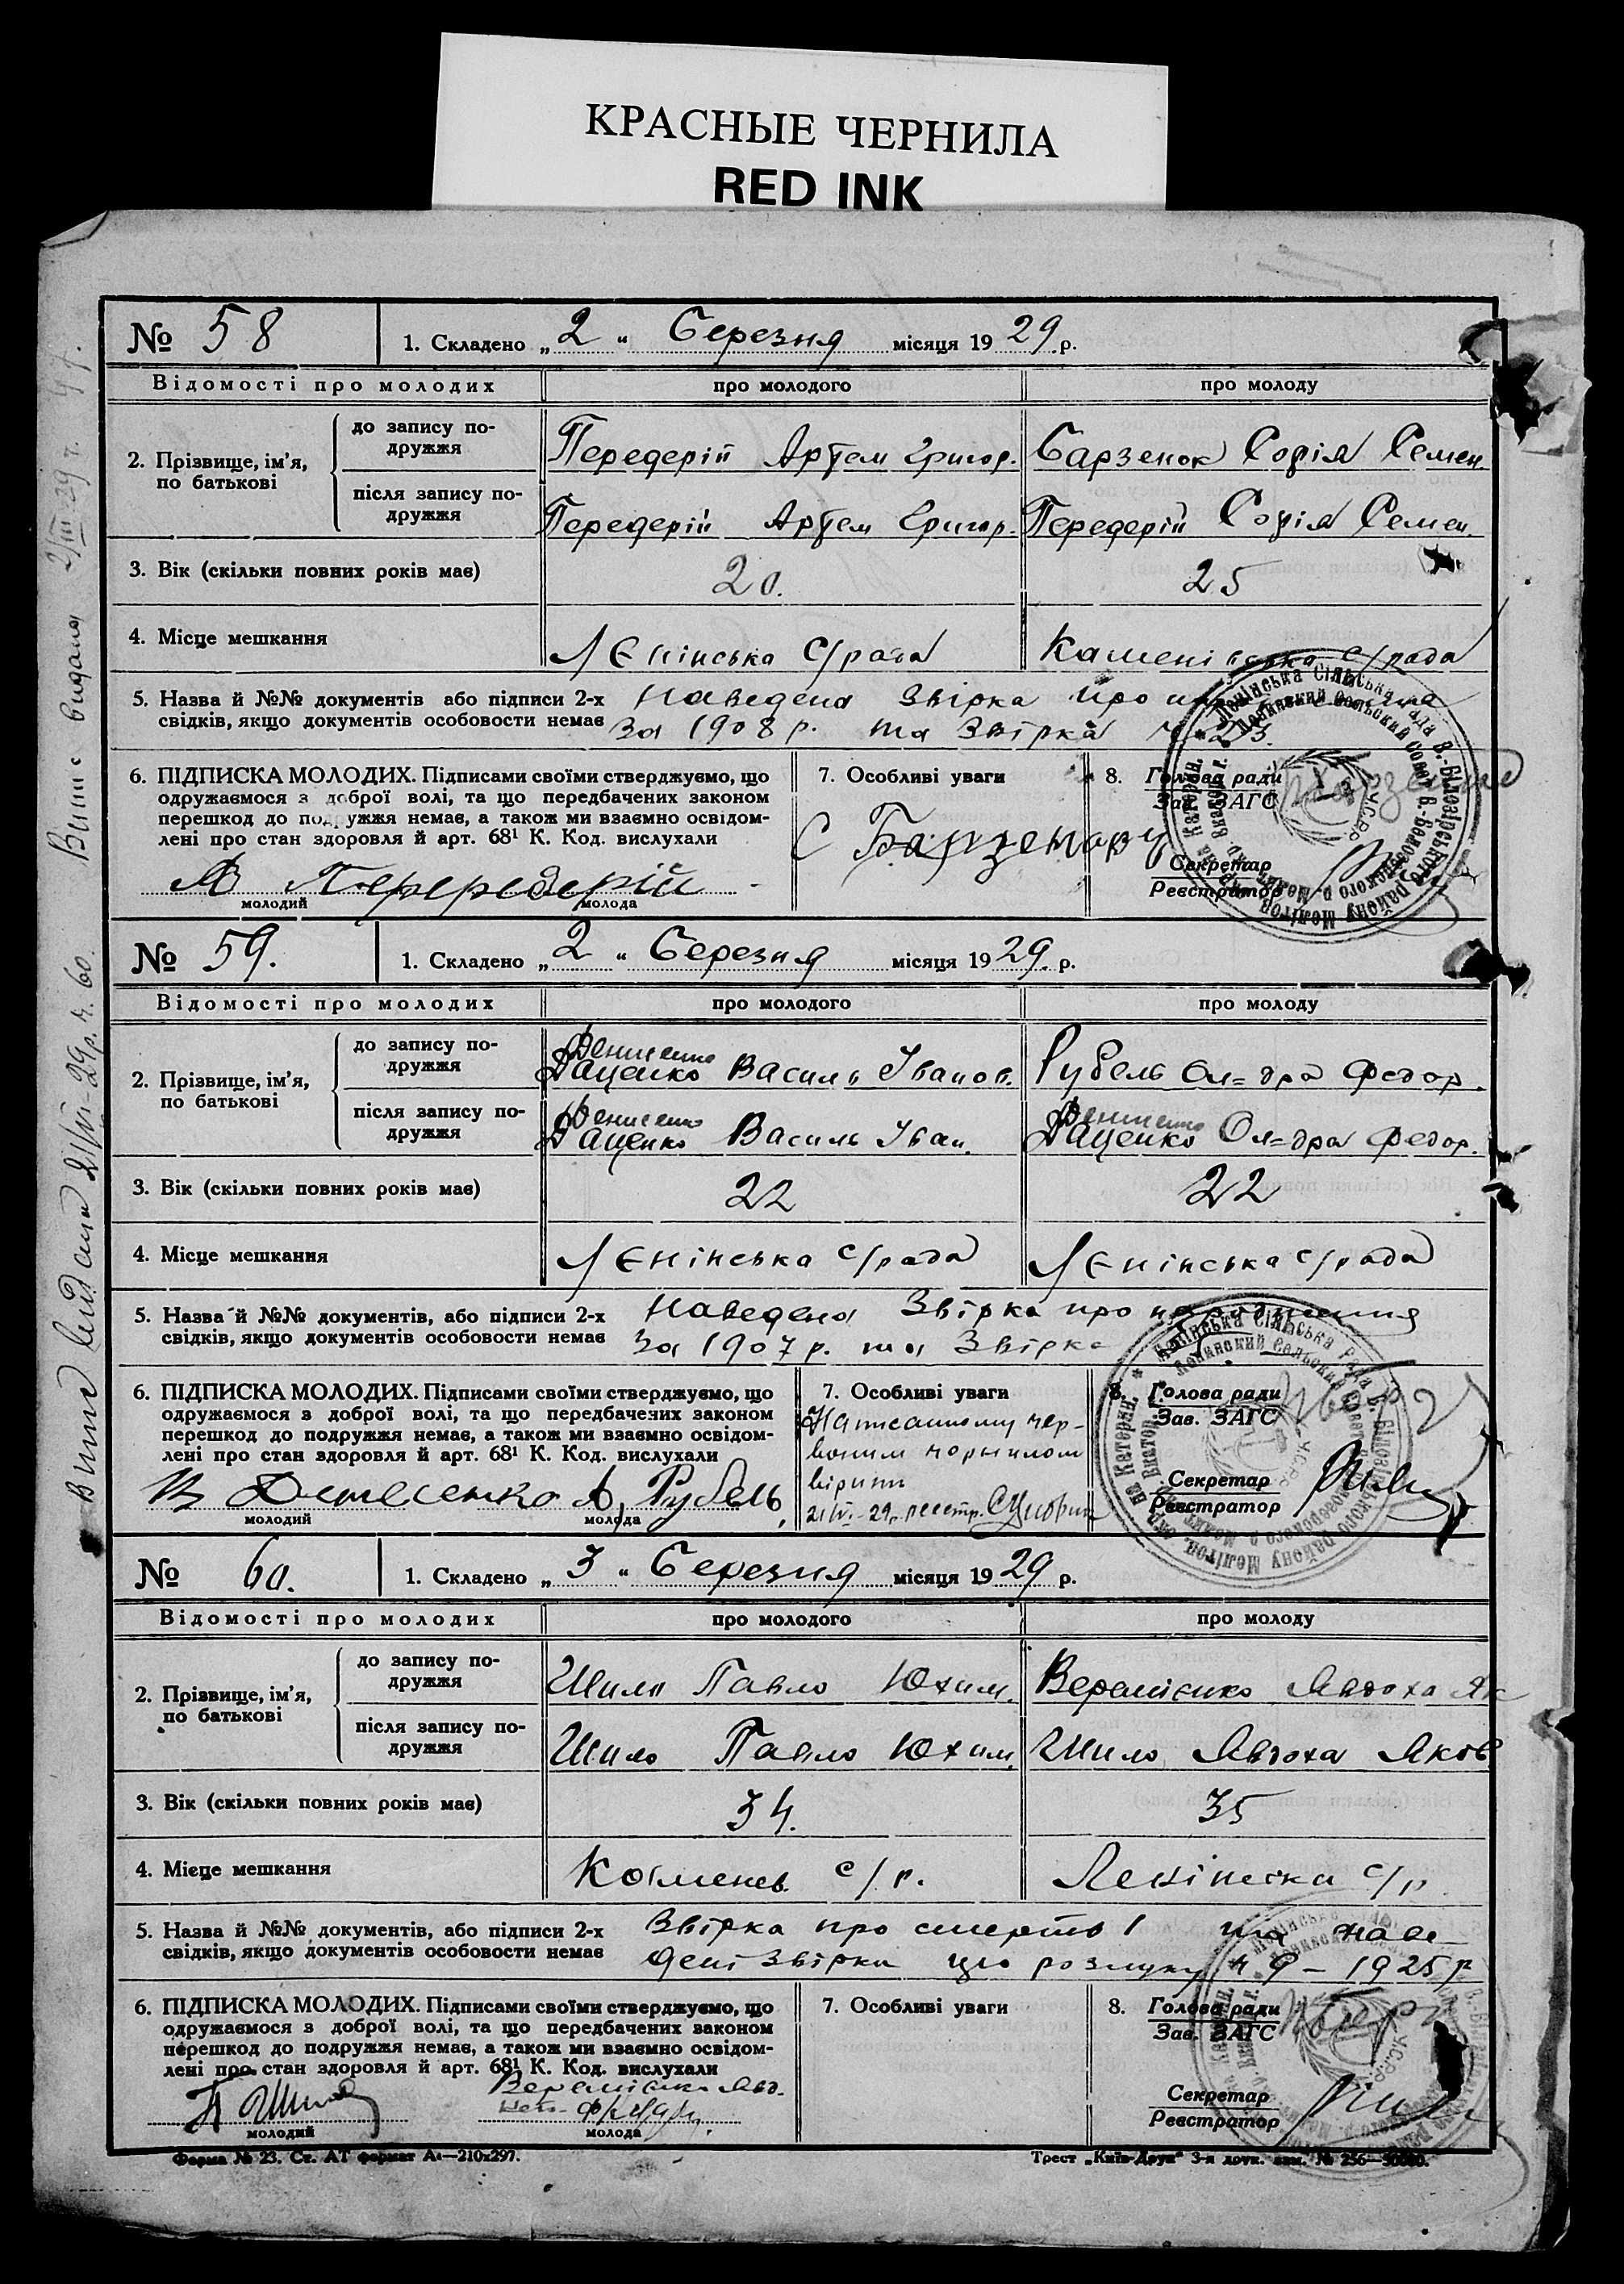 КРАСНЫЕ ЧЕРНИЛА
RED INK
№ 58 1. Складено „ 2 “ Березня місяця 1929 р.
Відомості про молодих про молодого про молоду
2. Прізвище, ім’я, по батькові
до запису подружжя Передерій Артем Григор. Барзенок Софія Семен.
після запису подружжя Передерій Артем Григор. Передерій Софія Семен.
3. Вік (скільки повних років має) 20. 25
4. Місце мешкання Лєнінська с/рада с/рада
5. Назва й №№ документів або підписи 2-х Наведена Звірка про
свідків, якщо документів особовости немає За 1908 р. та Звірка
6. ПІДПИСКА МОЛОДИХ. Підписами своїми стверджуємо, що
одружаємося з доброї волі, та що передбачених законом
перешкод до подружжя немає, а також ми взаємно освідом-
лені про стан здоровля й арт. 68¹ К. Код. вислухали
молодий молода
7. Особливі уваги
8. Голова ради
Зав. ЗАГС
Секретар
Реєстратор
№ 59. 1. Складено „ 2 “ Березня місяця 1929. р.
Відомості про молодих про молодого про молоду
2. Прізвище, ім’я, по батькові
до запису подружжя Денисенко
Даценко Василь Іванов. Рубель Ол=дра Федор.
після запису подружжя Денисенко Денисенко
Даценко Василь Іван. Даценко Ол=дра Федор.
3. Вік (скільки повних років має) 22 22
4. Місце мешкання Лєнінська с/рада Лєнінська с/рада
5. Назва й №№ документів, або підписи 2-х Наведена Звірка про народження
свідків, якщо документів особовости немає За 1907 р. та Звірка
6. ПІДПИСКА МОЛОДИХ. Підписами своїми стверджуємо, що
одружаємося з доброї волі, та що передбачених законом
перешкод до подружжя немає, а також ми взаємно освідом-
лені про стан здоровля й арт. 68¹ К. Код. вислухали
А. Рубель
молодий молода
7. Особливі уваги
Написаному чер-
воним чорнилом
вірити
21/VI-29р. реєстр.
8. Голова ради
Зав. ЗАГС
Секретар
Реєстратор
№ 60. 1. Складено „ 3 “ Березня місяця 1929 р.
Відомості про молодих про молодого про молоду
2. Прізвище, ім’я, по батькові
до запису подружжя Шило Павло Юхим. Веремієнко Явдоха Як
після запису подружжя Шило Павло Юхим. Шило Явдоха Яков
3. Вік (скільки повних років має) 34. 35
4. Місце мешкання Каменев. с/р. Ленінська с/р
5. Назва й №№ документів, або підписи 2-х Звірка про смерть та наве-
свідків, якщо документів особовости немає дені звірки про розлуку № 9 – 1925 р
6. ПІДПИСКА МОЛОДИХ. Підписами своїми стверджуємо, що
одружаємося з доброї волі, та що передбачених законом
перешкод до подружжя немає, а також ми взаємно освідом-
лені про стан здоровля й арт. 68¹ К. Код. вислухали
П Шило
молодий молода
7. Особливі уваги
8. Голова ради
Зав. ЗАГС
Секретар
Реєстратор
Форма № 23. Ст. АТ формат А4—210x297. Трест „Київ-Друк“ 3-я друк. зам. № 256—50000.
Випис видана 2/III-29 г.
Випис видана 21/VI-29р. №. 60.